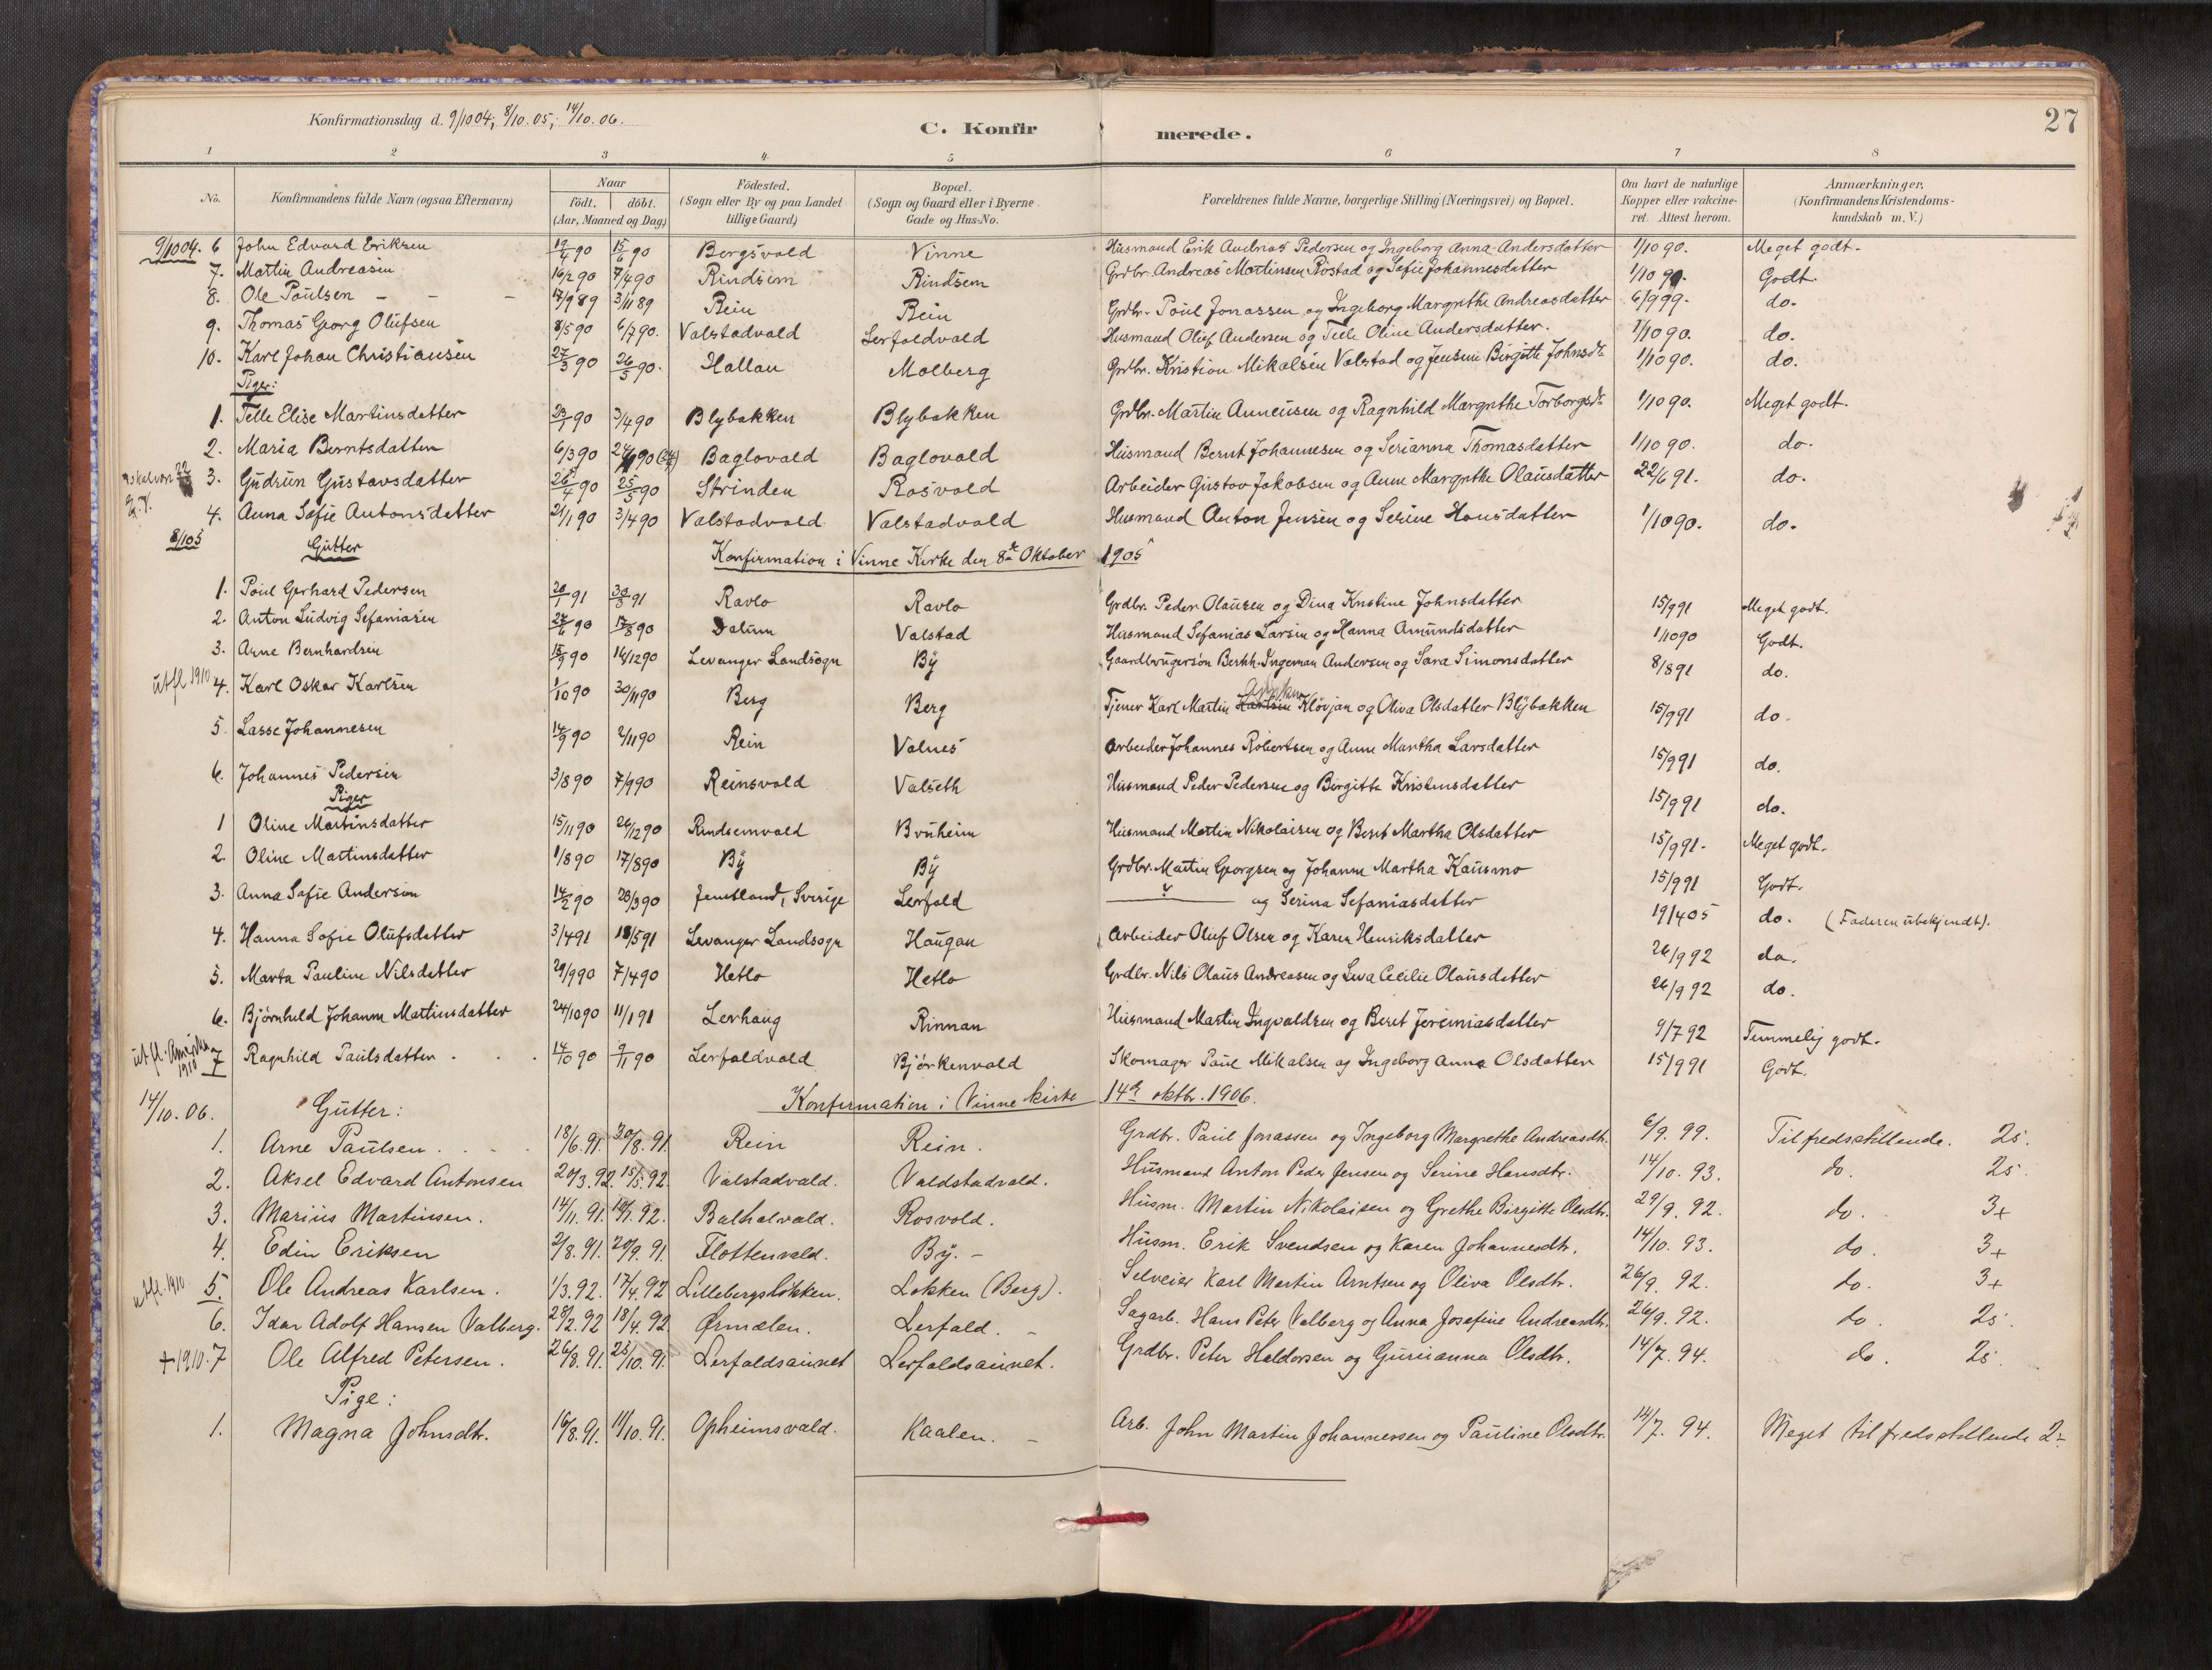 Konfirmationsdag d. 9/10 04; 8/10. 05; 14/10. 06.
C. Konfirmerede.
27
1 2 3 4 5 6 7 8
No. Konfirmandens fulde Navn (ogsaa Efternavn) Naar født, døbt. (Aar, Maaned og Dag) Fødested. (Sogn eller By og paa Landet tillige Gaard) Bopæl. (Sogn og Gaard eller i Byerne Gade og Hus-No. Forældrenes fulde Navne, borgerlige Stilling (Næringsvei) og Bopæl. Om havt de naturlige Kopper eller vakcineret. Attest herom. Anmærkninger. (Konfirmandens Kristendomskundskab m. V.)
9/10 04. 6 John Edvard Eriksen 19/4 90 15/6 90 Borgsvald Vinne Husmand Erik Andreas Pedersen og Ingeborg Anna Andersdatter 1/10 90. Meget godt.
7. Martin Andreasen 16/2 90 7/4 90 Rindsem Rindsem Grdbr. Andreas Martinsen Røstad og Sofie Johannesdatter 1/10 90. Godt.
8. Ole Paulsen - - - 17/9 89 3/11 89 Rein Rein Grdbr. Poul Jonassen og Ingeborg Margrethe Andreasdatter 6/9 99. do.
9. Thomas Georg Olufsen 8/5 90 6/7 90. Valstadvald Lerfaldvald Husmand Oluf Andersen og Telle Oline Andersdatter. 1/10 90. do.
10. Karl Johan Christiansen 27/3 90 26/5 90. Hallan Molberg Grdbr. Kristian Mikalsen Valstad og Jensine Birgitte Johnsdr 1/10 90. do.
Piger:
1. Telle Elise Martinsdatter 23/1 90 3/4 90 Blybakken Blybakken Grdbr. Martin Anneusen og Ragnhild Margrethe Torborgsdr 1/10 90. Meget godt.
2. Maria Berntsdatter 6/3 90 90 Baglovald Baglovald Husmand Bernt Johannesen og Serianna Thomasdatter 1/10 90. do.
3. Gudrun Gustavsdatter 26/4 90 25/5 90 Strinden Rosvold Arbeider Gustav Jakobsen og Anne Margrethe Olausdatter 22/6 91. do.
4. Anna Sofie Antonsdatter 21/1 90 3/4 90 Valstadvald Valstadvald Husmand Anton Jensen og Serine Hansdatter 1/10 90. do.
8/10 5 Gutter Konfirmation i Vinne Kirke den 8de Oktober 1905
1. Poul Gerhard Pedersen 20/1 91 30/3 91 Ravlo Ravlo Grdbr. Peder Olausen og Dina Kristine Johnsdatter 15/9 91 Meget godt.
2. Anton Ludvig Sefaniasen 27/6 90 17/8 90 Dalum Valstad Husmand Sefanias Larsen og Hanna Amundsdatter 1/10 90 Godt.
3. Arne Bernhardsen 15/9 90 14/12 90 Levanger Landsogn By Gaardbrugersøn Bernh. Ingeman Andersen og Sara Simonsdatter 8/8 91 do.
utfl 1910 4. Karl Oskar Karlsen 1/10 90 30/11 90 Berg Berg Tjener Karl Martin Karlsen Kløvjan og Oliva Olsdatter Blybakken 15/9 91 do.
5. Lasse Johannesen 14/9 90 2/11 90 Rein Valnes Arbeider Johannes Robertsen og Anne Martha Larsdatter 15/9 91 do.
6. Johannes Pedersen 3/8 90 7/9 90 Reinsvald Valseth Husmand Peder Pedersen og Birgitte Kristensdatter 15/9 91 do.
Piger
1 Oline Martinsdatter 15/11 90 26/12 90 Rindsemvald Bruheim Husmand Martin Nikolaisen og Beret Martha Olsdatter 15/9 91. Meget godt.
2. Oline Martinsdatter 1/8 90 17/8 90 By By Grdbr. Martin Georgsen og Johanne Martha Kausmo 15/9 91 Godt.
3. Anna Sofie Anderson 14/2 90 23/3 90 Jemtland, Sverige Lerfald og Serina Sefaniasdatter 19/4 05 do. (Faderen ubekjendt).
4. Hanna Sofie Olufsdatter 3/4 91 18/5 91 Levanger Landsogn Haugan Arbeider Oluf Olsen og Karen Henriksdatter 26/9 92 do.
5. Marta Pauline Nilsdatter 29/9 90 7/4 90 Hetlo Hetlo Grdbr. Nils Olaus Andreasen og Lava Cecilie Olausdatter 26/9 92 do.
6. Bjørnhild Johanne Martinsdatter 24/10 90 11/1 91 Lerhaug Rinnan Husmand Martin Ingvaldsen og Beret Jeremiasdatter 9/7 92 Temmelig godt.
utfl. Amerika 1910 7 Ragnhild Paulsdatter . . . 14/10 90 9/11 90 Lerfaldvald Bjørkenvald Skomager Paul Mikalsen og Ingeborg Anna Olsdatter 15/9 91 Godt.
14/10. 06. Gutter: Konfirmation i Vinne kirke 14de oktbr. 1906.
1. Arne Paulsen . . . 18/6. 91. 30/8. 91. Rein Rein. Grdbr. Paul Jonassen og Ingeborg Margrethe Andreasdtr. 6/9. 99. Tilfredsstillende. 2s.
2. Aksel Edvard Antonsen 20/3. 92. 15/5. 92. Valstadvald. Valdstadvald. Husmand Anton Peder Jensen og Serine Hansdtr. 14/10. 93. do. 2s
3. Marius Martinsen. 14/11. 91. 92. Balhalvald. Rosvold. Husm. Martin Nikolaisen og Grethe Birgitte Olsdtr. 29/9. 92. do. 3+
4. Edin Eriksen 2/8. 91. 20/9. 91 Flottenvald. By. - Husm. Erik Svendsen og Karen Johannesdtr. 14/10. 93. do. 3+
utfl. 1910 5. Ole Andreas Karlsen. 1/3. 92. 17/4. 92 Lillebergsløkken. Løkken (Berg). Selveier Karl Martin Arntsen og Oliva Olsdtr. 26/9. 92. do. 3+
6. Idar Adolf Hansen Valberg. 28/2. 92 18/4. 92. Ørmelen. Lerfald. - Sagarb. Hans Peter Valberg og Anna Josefine Andreasdtr. 26/9. 92. do. 2s.
+1910. 7 Ole Alfred Petersen. 26/8. 91. 25/10. 91. Lerfaldsaunet Lerfaldsaunet. Grdbr. Peter Haldorsen og Gurianna Olsdtr. 14/7. 94. do. 2s.
Pige:
1. Magna Johnsdtr. 16/8. 91. 11/10. 91. Opheimsvald. Kaalen. - Arb. John Martin Johannessen og Pauline Olsdtr. 14/7. 94. Meget tilfredsstillende 2-